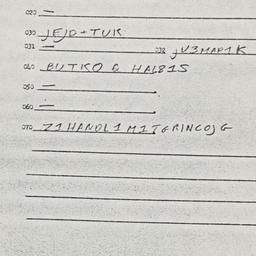 020 —
030 JEJD+TUR
031 — 032 jV3MAP1K
040 BUTKO & HAL81S
050 —
060 —
070 Z1HANDL1M1TGRINCOJG